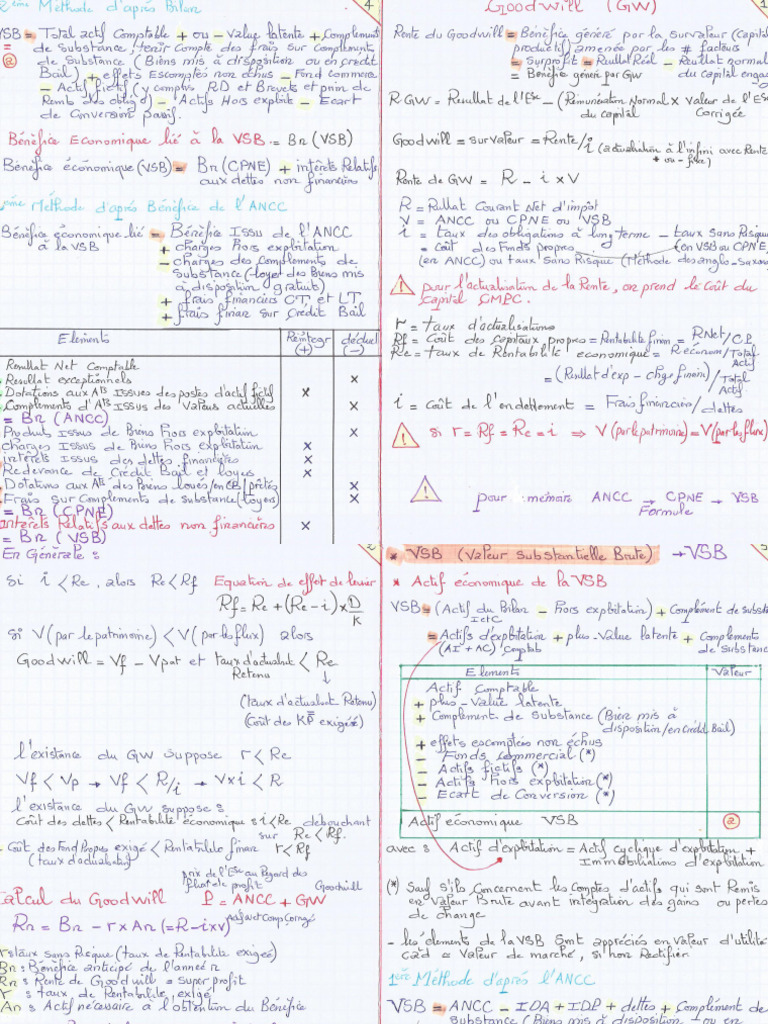 Goodwill (GW)
1
Rente du Goodwill = Bénéfice généré par la Survaleur (capital
productif) amenée par les # facteurs
= Surprofit = Resultat Réel - Resultat normal
= Bénéfice généré par GW du capital engag
R.GW = Resultat de l'Ese - (Remunération Normal x Valeur de l'Ese
du capital Corrigée
Goodwill = survaleur = Rente/i (actualisation à l'infini avec Rente
+ ou - fixe)
Rente de GW = R - i x V
R = Rsultat Courant Net d'impôt
V = ANCC ou CPNE ou VSB
i = taux des obligations à long terme - taux sans Risque
= coût des Fonds propres (en VSB ou CPNE)
(en ANCC) ou taux sans Risque (Méthode des anglo-saxons
pour l'actualisation de la Rente, on prend le Coût du
Capital CMPC.
r = taux d'actualisations
Rf = Coût des capitaux propres = Rentabilité financ = RNet/CP
Re = taux de Rentabilité economique = R.éconóm/Total
Actif
= (Resultat d'exp - chges financ)/Total
Actif
i = Coût de l'endettement = Frais financiers/dettes
si r = Rf = Re = i ⇒ V (par le patrimoine) = V (par les flux)
pour mémoire ANCC → CPNE → VSB
Formule
2
En Générale :
Si i < Re, alors Re < Rf Equation de effet de levier
Rf = Re + (Re - i) x D/K
si V (par le patrimoine) < V (par les flux) alors
Goodwill = Vf - Vpat et taux d'actualisat < Re
Retenu
(taux d'actualisat Retenu)
(Coût des KP exigées)
l'existance du GW suppose r < Re
Vf < Vp → Vf < R/i → V x i < R
l'existance du GW suppose :
Coût des dettes < Rentabilité économique si i < Re debouchant
sur Re < Rf.
- Coût des Fond Propres exigé < Rentabilité financ r < Rf
(taux d'actualisat)
prix de l'Ese au Regard des
flux et le profit Goodwill
Calcul du Goodwill P = ANCC + GW
Rn = Bn - r x An (= R - i x V) Actif net Comp Corrigé
r : taux sans Risque (taux de Rentabilité exigée)
Bn : Bénéfice anticipé de l'année n
Rn : Rente de Goodwill = super profit
r : taux de Rentabilité exigé
An : Actif nécessaire à l'obtention du Bénéfice
* VSB (Valeur Substantielle Brute) → VSB
3
* Actif économique de la VSB
VSB = (Actif du Bilan - Hors exploitation) + Complément de subst
IetC
= Actifs d'exploitation + plus-Value latente + Complements
(AI + AC) Comptab de Substance
Elements Valeur
Actif Comptable
+ plus-Value latente
+ Complément de Substance (Bien mis à
disposition/en Crédit Bail)
+ effets escomptés non échus
- Fonds Commercial (*)
- Actifs fictifs (*)
- Actifs Hors exploitation (*)
- Ecart de Conversion (*)
Actif économique VSB 2
avec : Actif d'exploitation = Actif cyclique d'exploitation +
Immobilisations d'exploitation
(*) Sauf s'ils Concernent les Comptes d'actifs qui sont Remis
en Valeur Brute avant integration des gains ou pertes
de change
- les éléments de la VSB Sont appréciés en Valeur d'utilité
càd = Valeur de marché, si non Rectifier
1ère Méthode d'après l'ANCC
VSB = ANCC - IDA + IDP + dettes + Complément de
Substance (Biens mis à disposition ou en
2ème Méthode d'après Bilan
4
VSB = Total actif Comptable + ou - Value latente + Complement
= de Substance, tenir Compte des frais sur Complements
2 de Substance (Biens mis à disposition ou en credit
Bail) + effets Escomptés non échus - Fond commerce
- Actif fictif (y compris RD et Brevets et prim de
Remb des oblig°) - Actifs Hors exploit° - Ecart
de Conversion passif.
Bénéfice Economique lié à la VSB = Bn (VSB)
Bénéfice économique (VSB) = Bn (CPNE) + intérêts Relatifs
aux dettes non financières
2ème Méthode d'après Bénéfice de l'ANCC
Bénéfice économique lié = Bénéfice Issu de l'ANCC
à la VSB + charges Hors exploitation
- charges des Complements de
Substance (-loyer des Biens mis
à disposition gratuits)
+ frais financiers CT, et LT
+ frais financ sur Crédit Bail
Elements Réintegr (+) déduct (-)
Resultat Net Comptable
Resultat exceptionnels x
Dotations aux Ats Issues des postes d'actif fictif x
Complements d'Ats Issus des Valeurs actuelles x
= Bn (ANCC)
Produits Issus de Biens Hors exploitation x
charges Issus de Biens Hors exploitation x
interêts Issus des dettes financières x
Redevance de Crédit Bail et loyers x
Dotations aux Ats des Biens loués/en CB/prêtés x
Frais sur Complements de substance (loyers) x
= Bn (CPNE)
Interêts Relatifs aux dettes non financières x
= Bn (VSB)